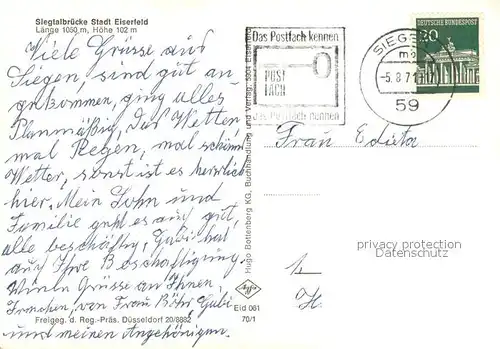 Siegtalbrücke Stadt Eiserfeld
Länge 1050 m, Höhe 102 m
Viele Grüsse aus
Siegen, sind gut an-
gekommen, ging alles
Planmäßig, Das Wetter
mal Regen, mal schönes
Wetter, sonst ist es herrlich
hier. Mein Sohn und
Familie geht es auch gut,
alle beschäftig, Gabi hat
auch Ihre Beschäftigung.
Viele Grüsse an Ihnen,
Irmchen, von Frau Bühr, Gabi
und meinen Angehörigen.
Freigeg. d. Reg.-Präs. Düsseldorf 20/8832
Hugo Bottenberg KG, Buchhandlung und Verlag, 5901 Eiserfeld
Agfa
Eid 061
70/1
Das Postfach kennen
POST
FACH
das Postfach nennen
SIEGEN
-5.8.71
59
DEUTSCHE BUNDESPOST
20
Frau Edieta
privacy protection
Datenschutz